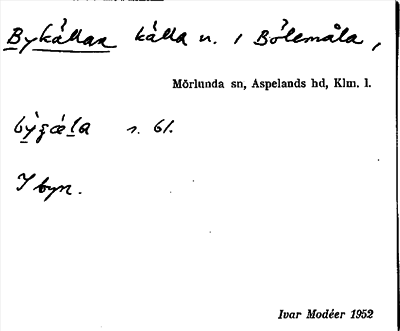 Bykällan källa n. i Bölemåla,
Mörlunda sn, Aspelands hd, Klm. l.
s. 61.
I byn.
Ivar Modéer 1952